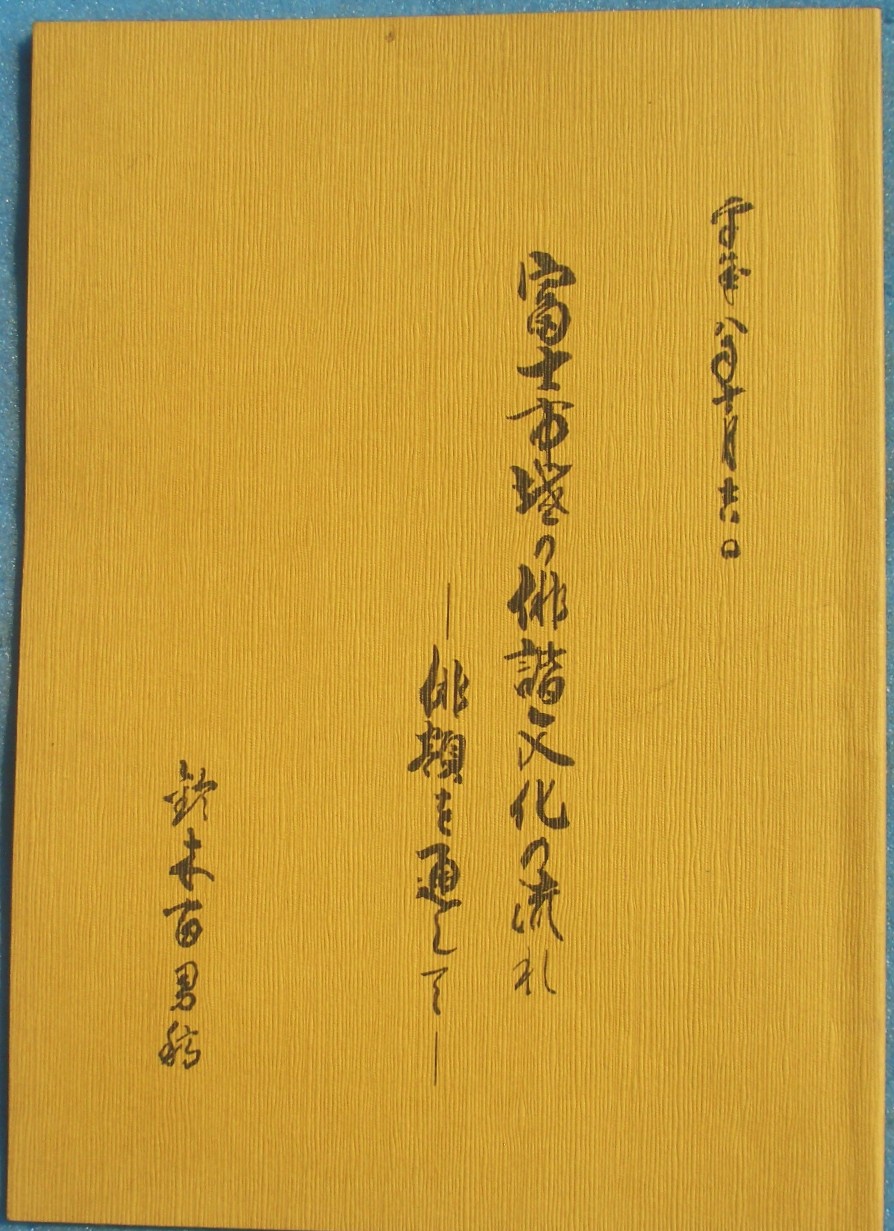 平成八年 月 日
富士市域の俳諧文化の流れ
―俳額を通して―
鈴木 男稿